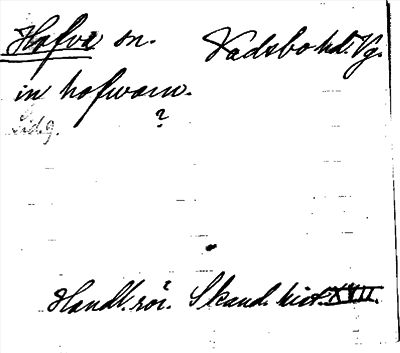 Hafva sn. Vadsbo hd. Vg.
in hofwam.
?
Lidg.
Handl. rör. Skand. hist. XVII.